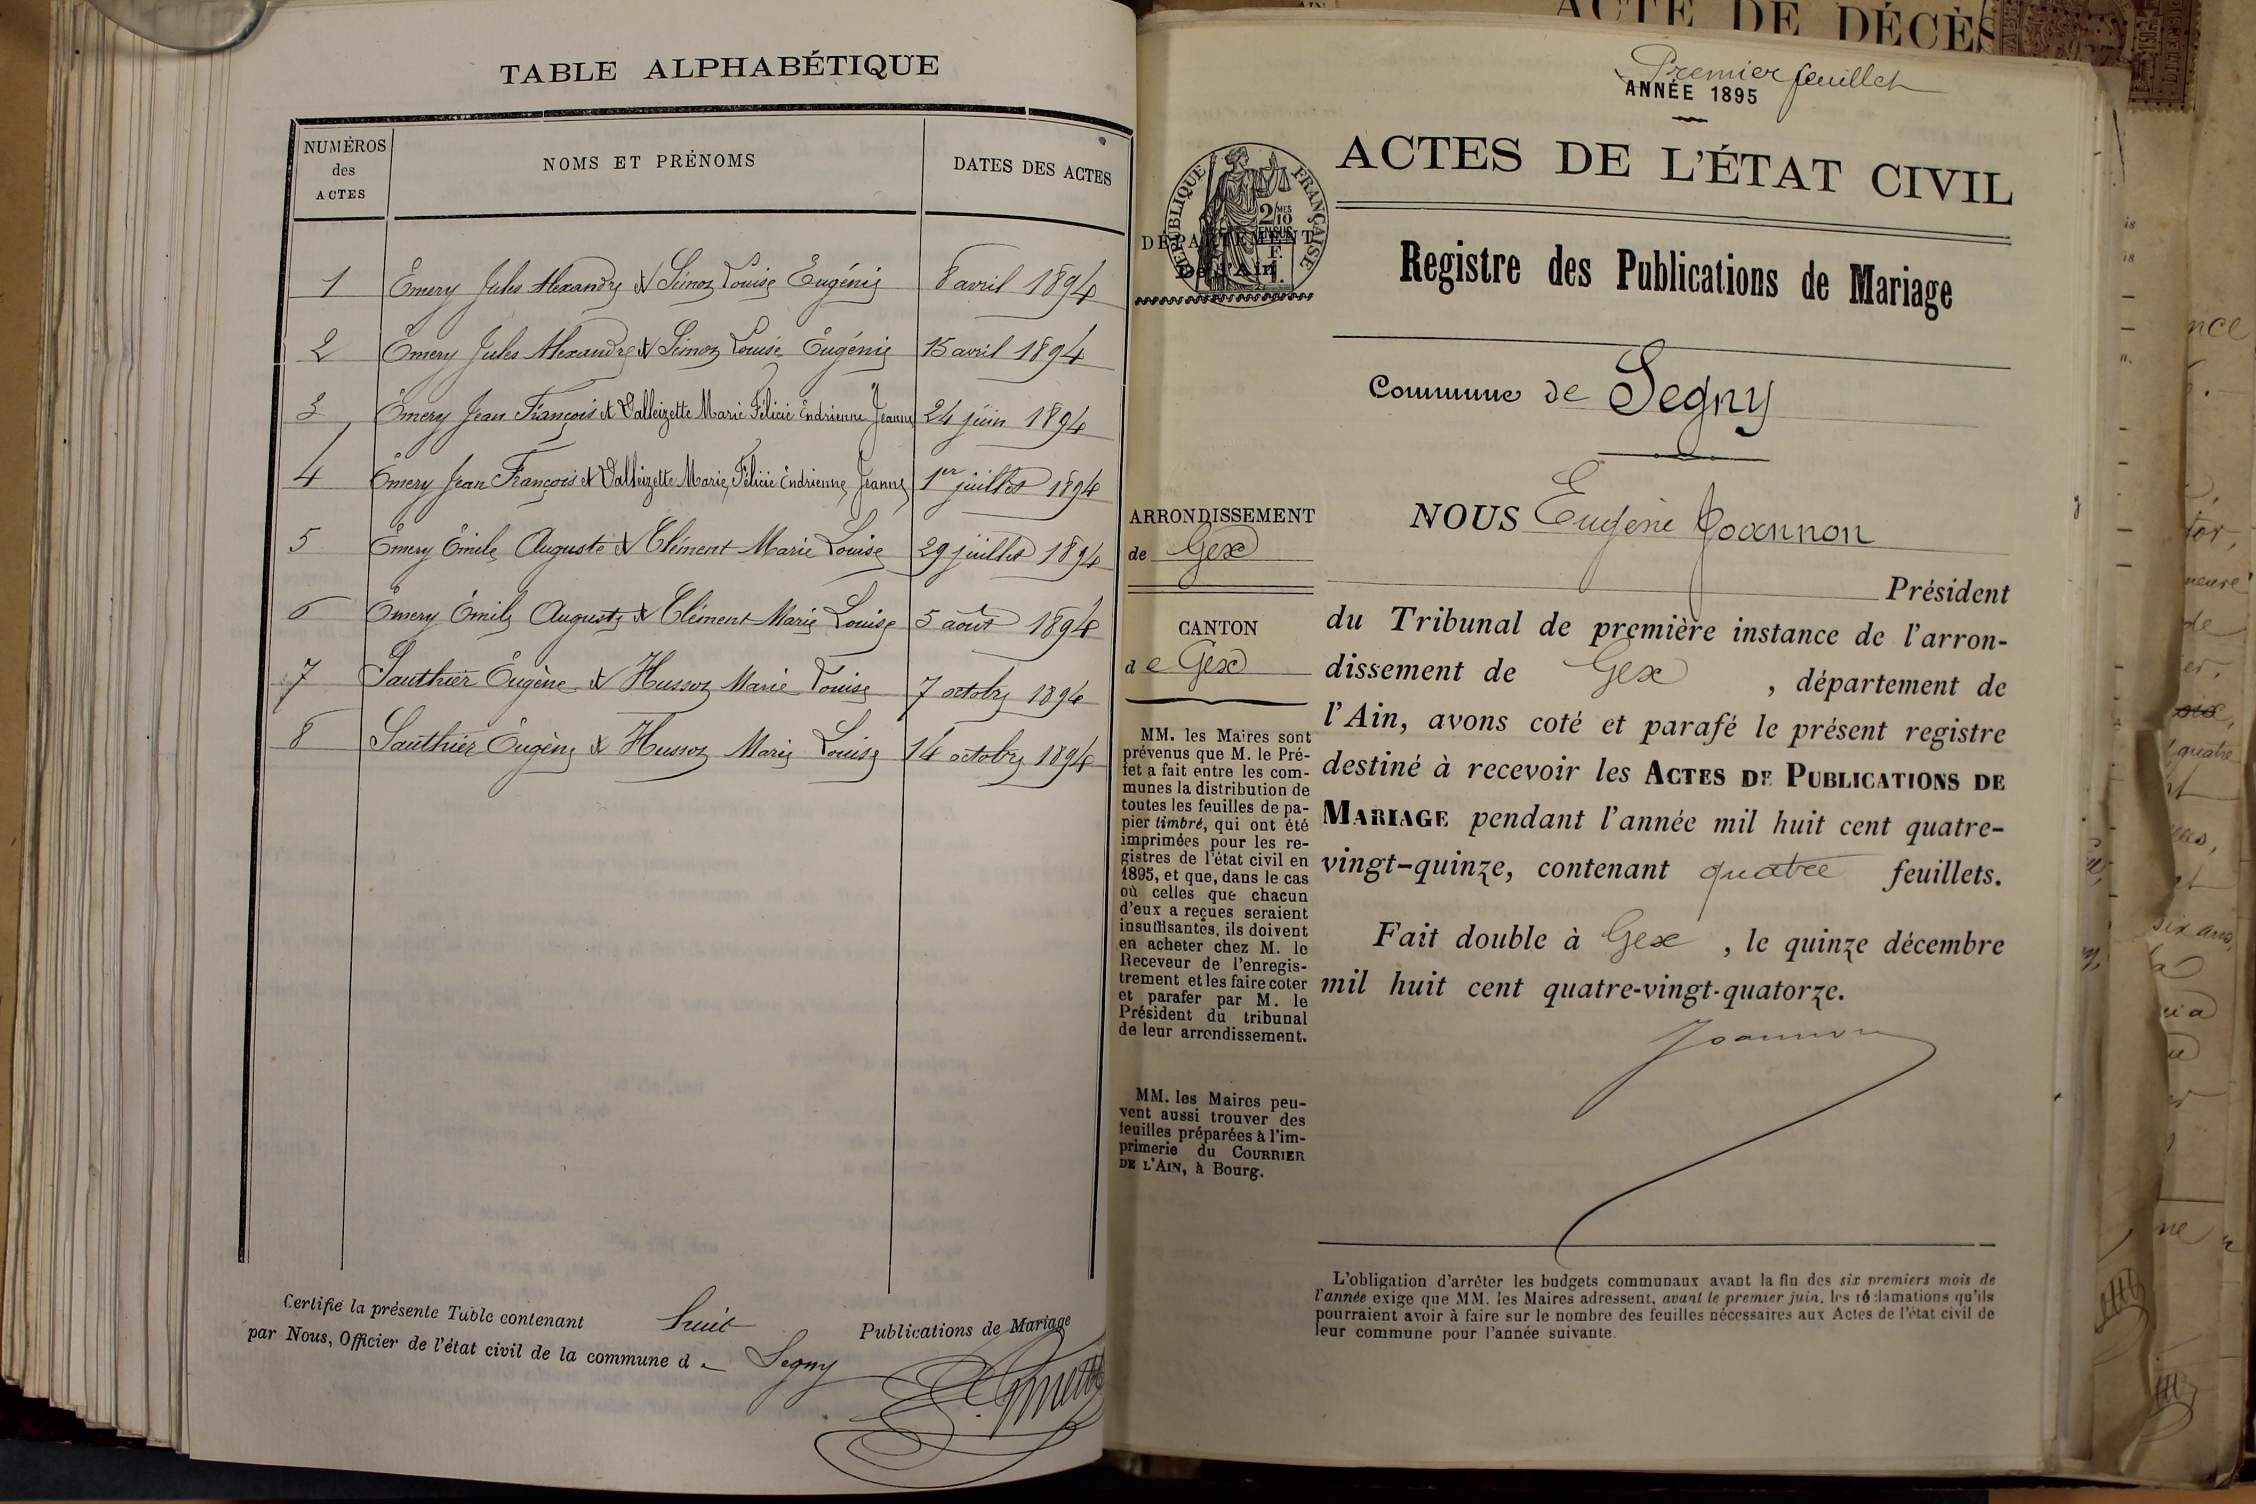 TABLE ALPHABÉTIQUE
NUMÉROS des ACTES
NOMS ET PRÉNOMS
DATES DES ACTES
1 Émery Jules Alexandre et Simoz Louise Eugénie 8 avril 1894
2 Émery Jules Alexandre et Simoz Louise Eugénie 15 avril 1894
3 Émery Jean François et Valleizette Marie Félicie Endrienne Jeanne 24 juin 1894
4 Émery Jean François et Valleizette Marie Félicie Endrienne Jeanne 1er juillet 1894
5 Émery Émile Auguste et Clément Marie Louise 29 juillet 1894
6 Émery Émile Auguste et Clément Marie Louise 5 août 1894
7 Gauthier Eugène et Hussoz Marie Louise 7 octobre 1894
8 Gauthier Eugène et Hussoz Marie Louise 14 octobre 1894
Certifié la présente Table contenant huit Publications de Mariage
par Nous, Officier de l'état civil de la commune de Segny
ACTE DE DÉCÈS
Premier feuillet
ANNÉE 1895
ACTES DE L'ÉTAT CIVIL
RÉPUBLIQUE FRANÇAISE
2/10
EN SUS
DÉPARTEMENT
De l'Ain
Registre des Publications de Mariage
Commune de Segny
ARRONDISSEMENT
de Gex
CANTON
de Gex
MM. les Maires sont
prévenus que M. le Pré-
fet a fait entre les com-
munes la distribution de
toutes les feuilles de pa-
pier timbré, qui ont été
imprimées pour les re-
gistres de l'état civil en
1895, et que, dans le cas
où celles que chacun
d'eux a reçues seraient
insuffisantes, ils doivent
en acheter chez M. le
Receveur de l'enregis-
trement et les faire coter
et parafer par M. le
Président du tribunal
de leur arrondissement.
MM. les Maires peu-
vent aussi trouver des
feuilles préparées à l'im-
primerie du COURRIER
DE L'AIN, à Bourg.
NOUS Eugène Joannon
Président
du Tribunal de première instance de l'arron-
dissement de Gex, département de
l'Ain, avons coté et parafé le présent registre
destiné à recevoir les ACTES DE PUBLICATIONS DE
MARIAGE pendant l'année mil huit cent quatre-
vingt-quinze, contenant quatre feuillets.
Fait double à Gex, le quinze décembre
mil huit cent quatre-vingt-quatorze.
Joannon
L'obligation d'arrêter les budgets communaux avant la fin des six premiers mois de
l'année exige que MM. les Maires adressent, avant le premier juin, les réclamations qu'ils
pourraient avoir à faire sur le nombre des feuilles nécessaires aux Actes de l'état civil de
leur commune pour l'année suivante.